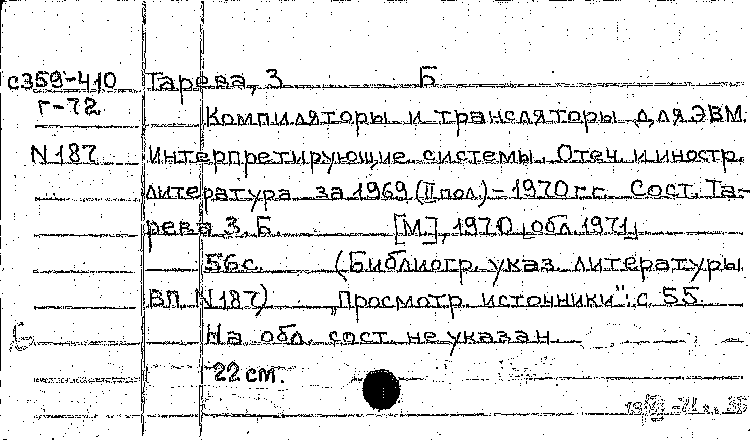 С359-410 Тарева, З Б
Г-72 Компиляторы и трансляторы для ЭВМ.
N 187 Интерпретирующие системы. Отеч. и иностр.
литература за 1969 (II пол.) – 1970 г.г. Сост. Та-
рева З. Б. [М.], 1970 [обл. 1971]
56 с. (Библиогр. указ. литературы
ВП N 187) „Просмотр. источники": с 55.
На обл. сост. не указан
22 см.